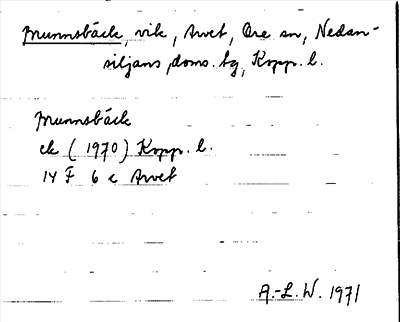 Brunnsbäck, vik, Arvet, Ore sn, Nedan-
siljans doms. tg, Kopp. l.
Brunnsbäck
ek (1970) Kopp. l.
14 F 6 c Arvet
A.-L. W. 1971